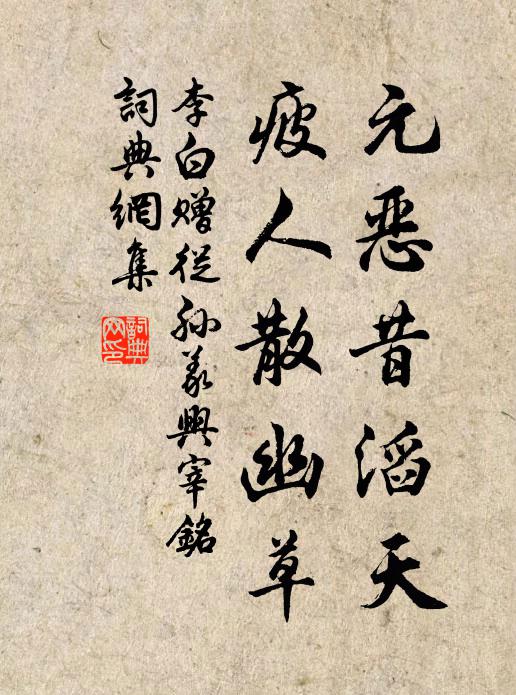 元恶昔滔天
疲人散幽草
李白赠從孙義興宰銘
詞典網集
詞典網印